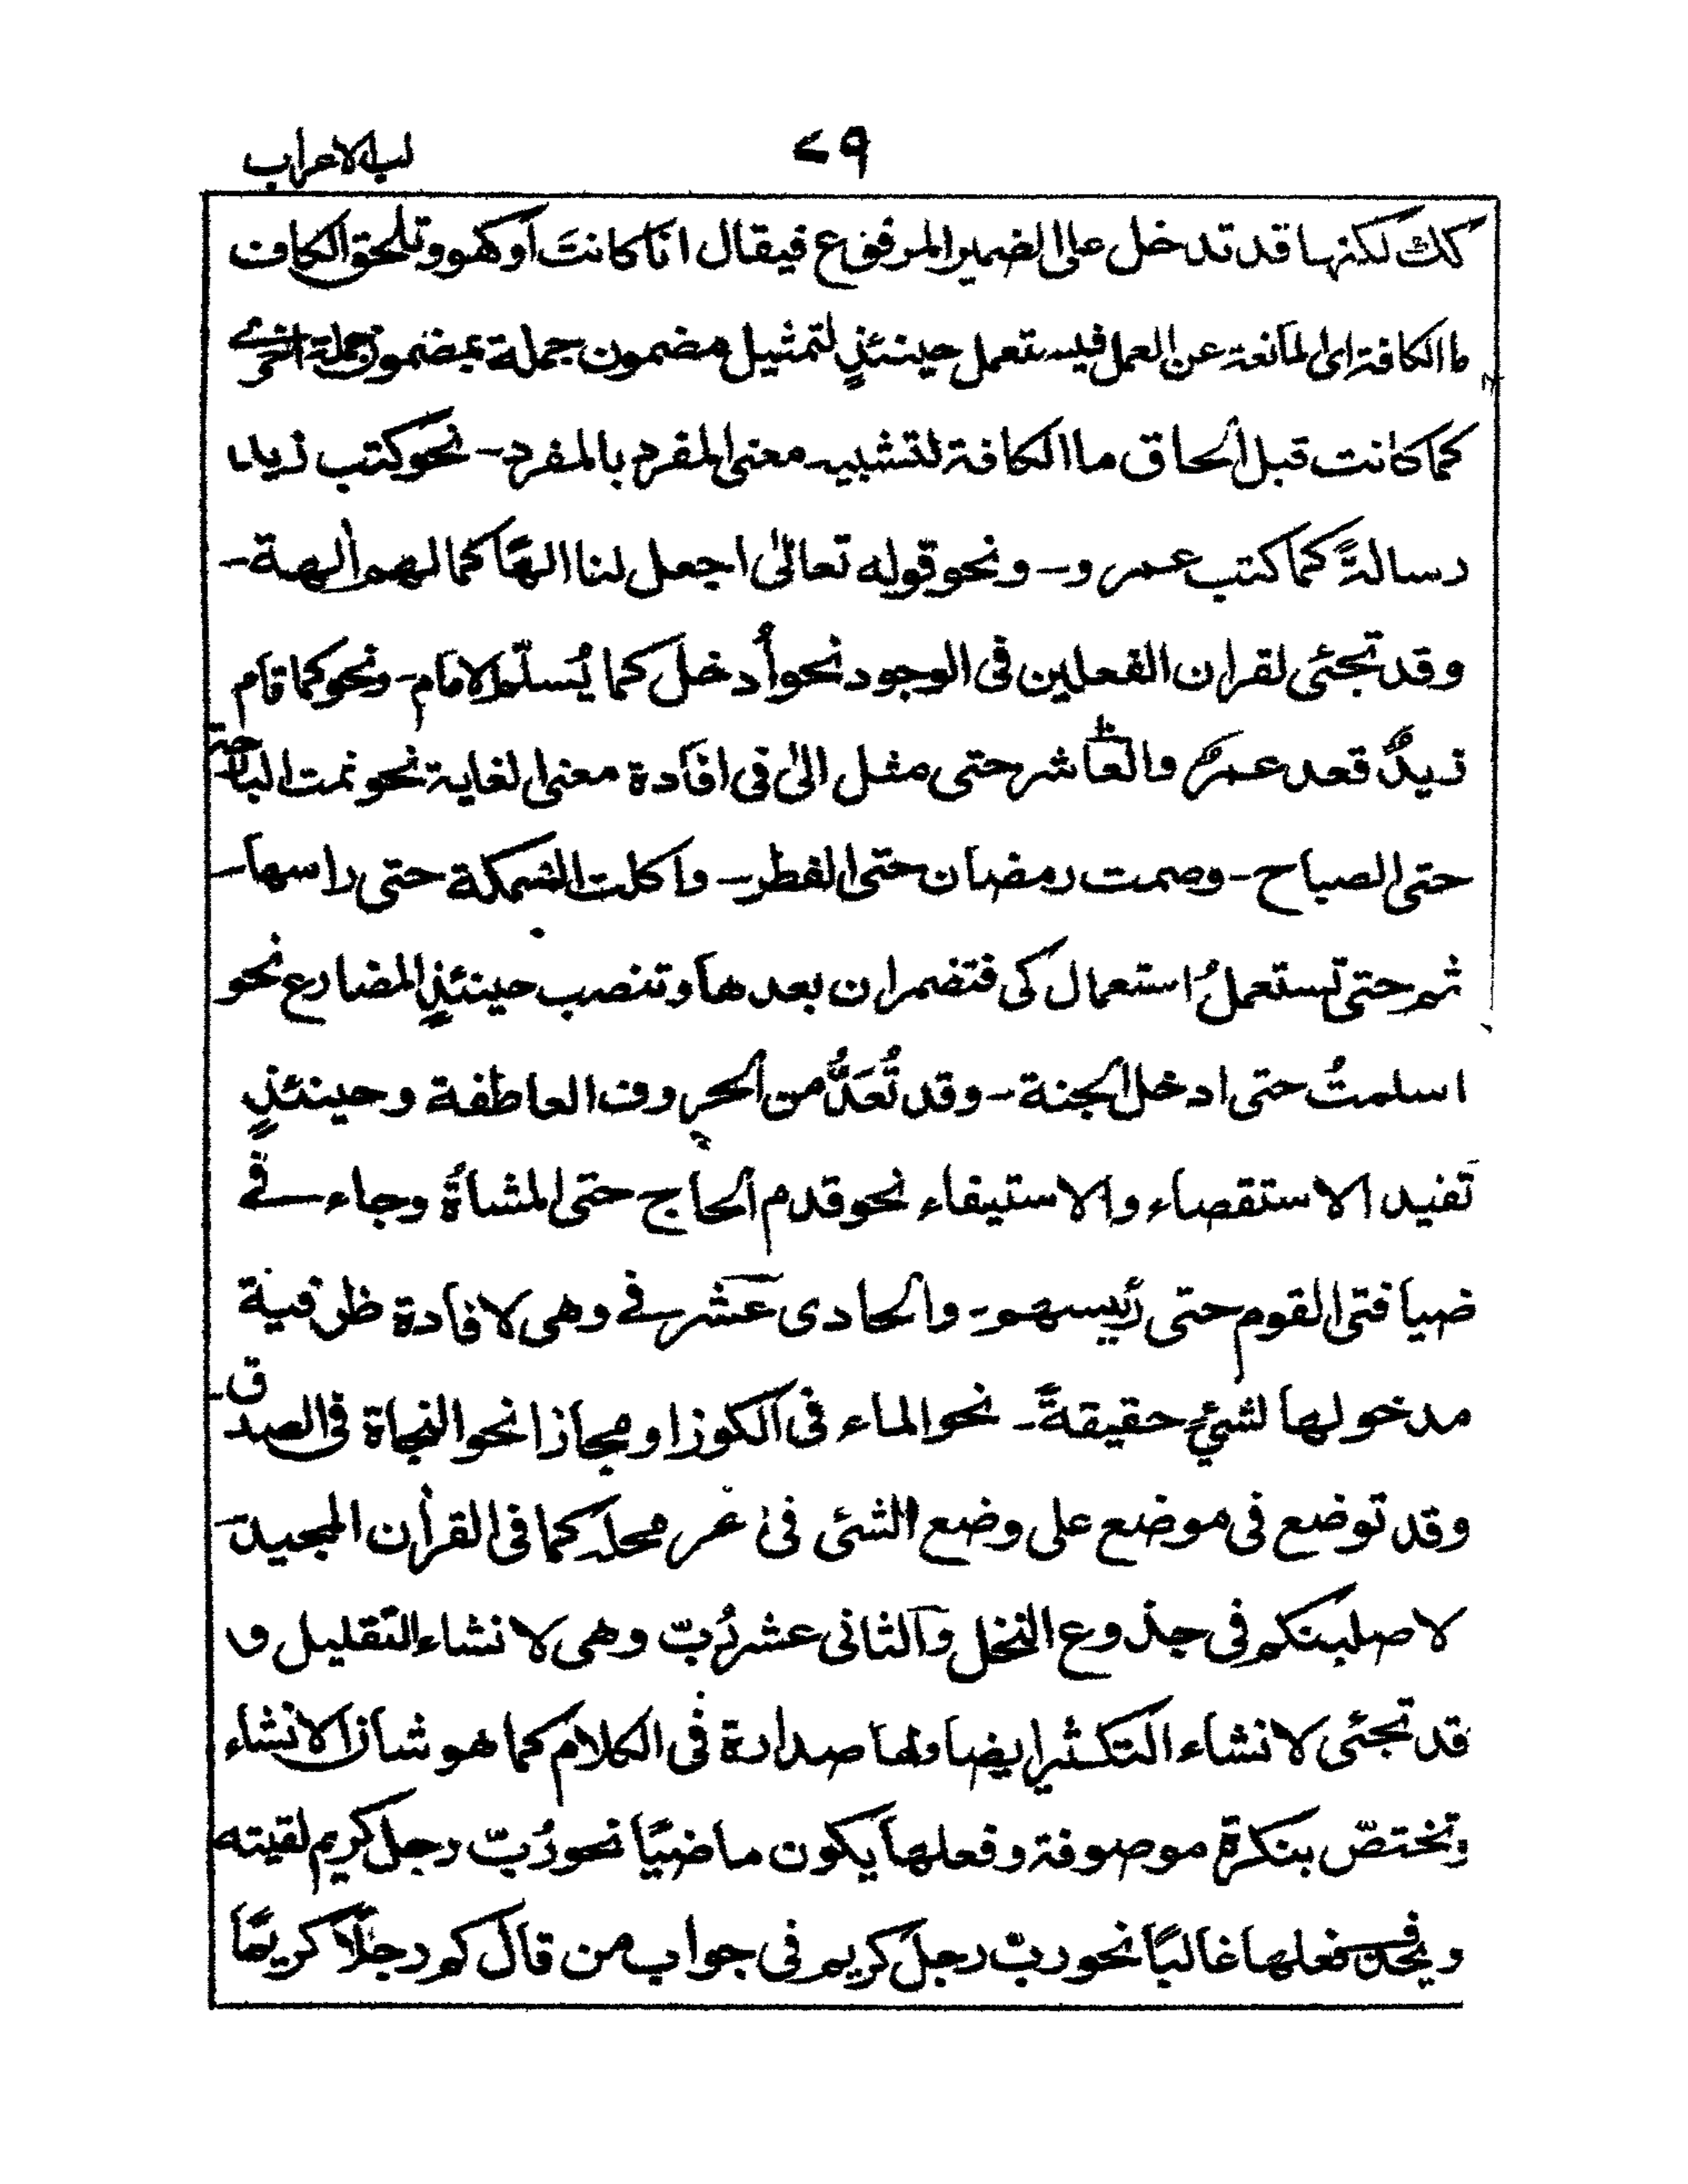 لب الاعراب
۷۹
كك لكنها قد تدخل على الضمير المرفوع فيقال انا كانت او كهو وتلحق الكاف
ما الكافة اى المانعة عن العمل فيستعمل حينئذٍ لتمثيل مضمون جملة بمضمون جملة اخرے
كما كانت قبل الحاق ما الكافة لتشبيه معنى المفرد بالمفرد - نحو كتب زيد
رسالةً كما كتب عمرو - ونحو قوله تعالىٰ اجعل لنا الهًا كما لهم اٰلهة -
وقد تجئى لقران الفعلين فى الوجود نحو أُدخل كما يُسلّم الامام - ونحو كما قام
زيدٌ قعد عمرٌو والعاشر حتى مثل الىٰ فى افادة معنى الغاية نحو نمت البارحة
حتى الصباح - وصمت رمضان حتى الفطر - واكلت السمكة حتى راسها -
ثم حتى تستعملُ استعمال كى فتضمر ان بعدها وتنصب حينئذٍ المضارع نحو
اسلمتُ حتى ادخل الجنة - وقد تُعَدُّ من الحروف العاطفة وحينئذٍ
تفيد الاستقصاء والاستيفاء نحو قدم الحاج حتى المشاةُ وجاء فے
ضيافتى القوم حتى رئيسهم - والحادى عشر فے وهى لافادة ظرفية
مدخولها لشئٍ حقيقةً - نحو الماء فى الكوز او مجازا نحو النجاة فى الصدق -
وقد توضع فى موضع على وضع الشئى فى غر محله كما فى القرأن المجيد -
لاصلبنكم فى جذوع النخل والثانى عشر رُبّ وهى لانشاء التقليل و
قد تجئى لانشاء التكثير ايضا ولها صدارة فى الكلام كما هو شان الانشاء
وتختصّ بنكرة موصوفة وفعلها يكون ماضيًا نحو رُبّ رجل كريم لقيته
ويحذف فعلها غالبًا نحو ربّ رجل كريم فى جواب من قال كم رجلًا كريمًا